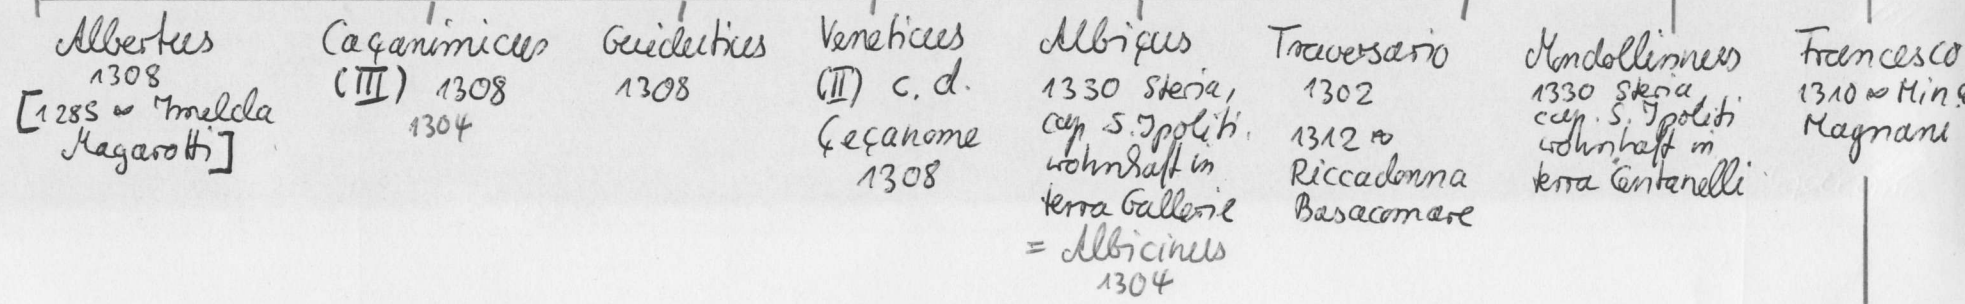 Albertus
1308
[1285 ∞ Imelda
Magarotti]
Caçanimicus
(III) 1308
1304
Guiducticus
1308
Veneticus
(II) c. d.
Çeçanome
1308
Albiçus
1330 Steria,
cap. S. Ypoliti.
wohnhaft in
terra Gallerie
= Albicinus
1304
Traversario
1302
1312 ∞
Riccadonna
Basacomare
Mondollinus
1330 Steria,
cap. S. Ypoliti
wohnhaft in
terra Centanelli
Francesco
1310 ∞
Magnani